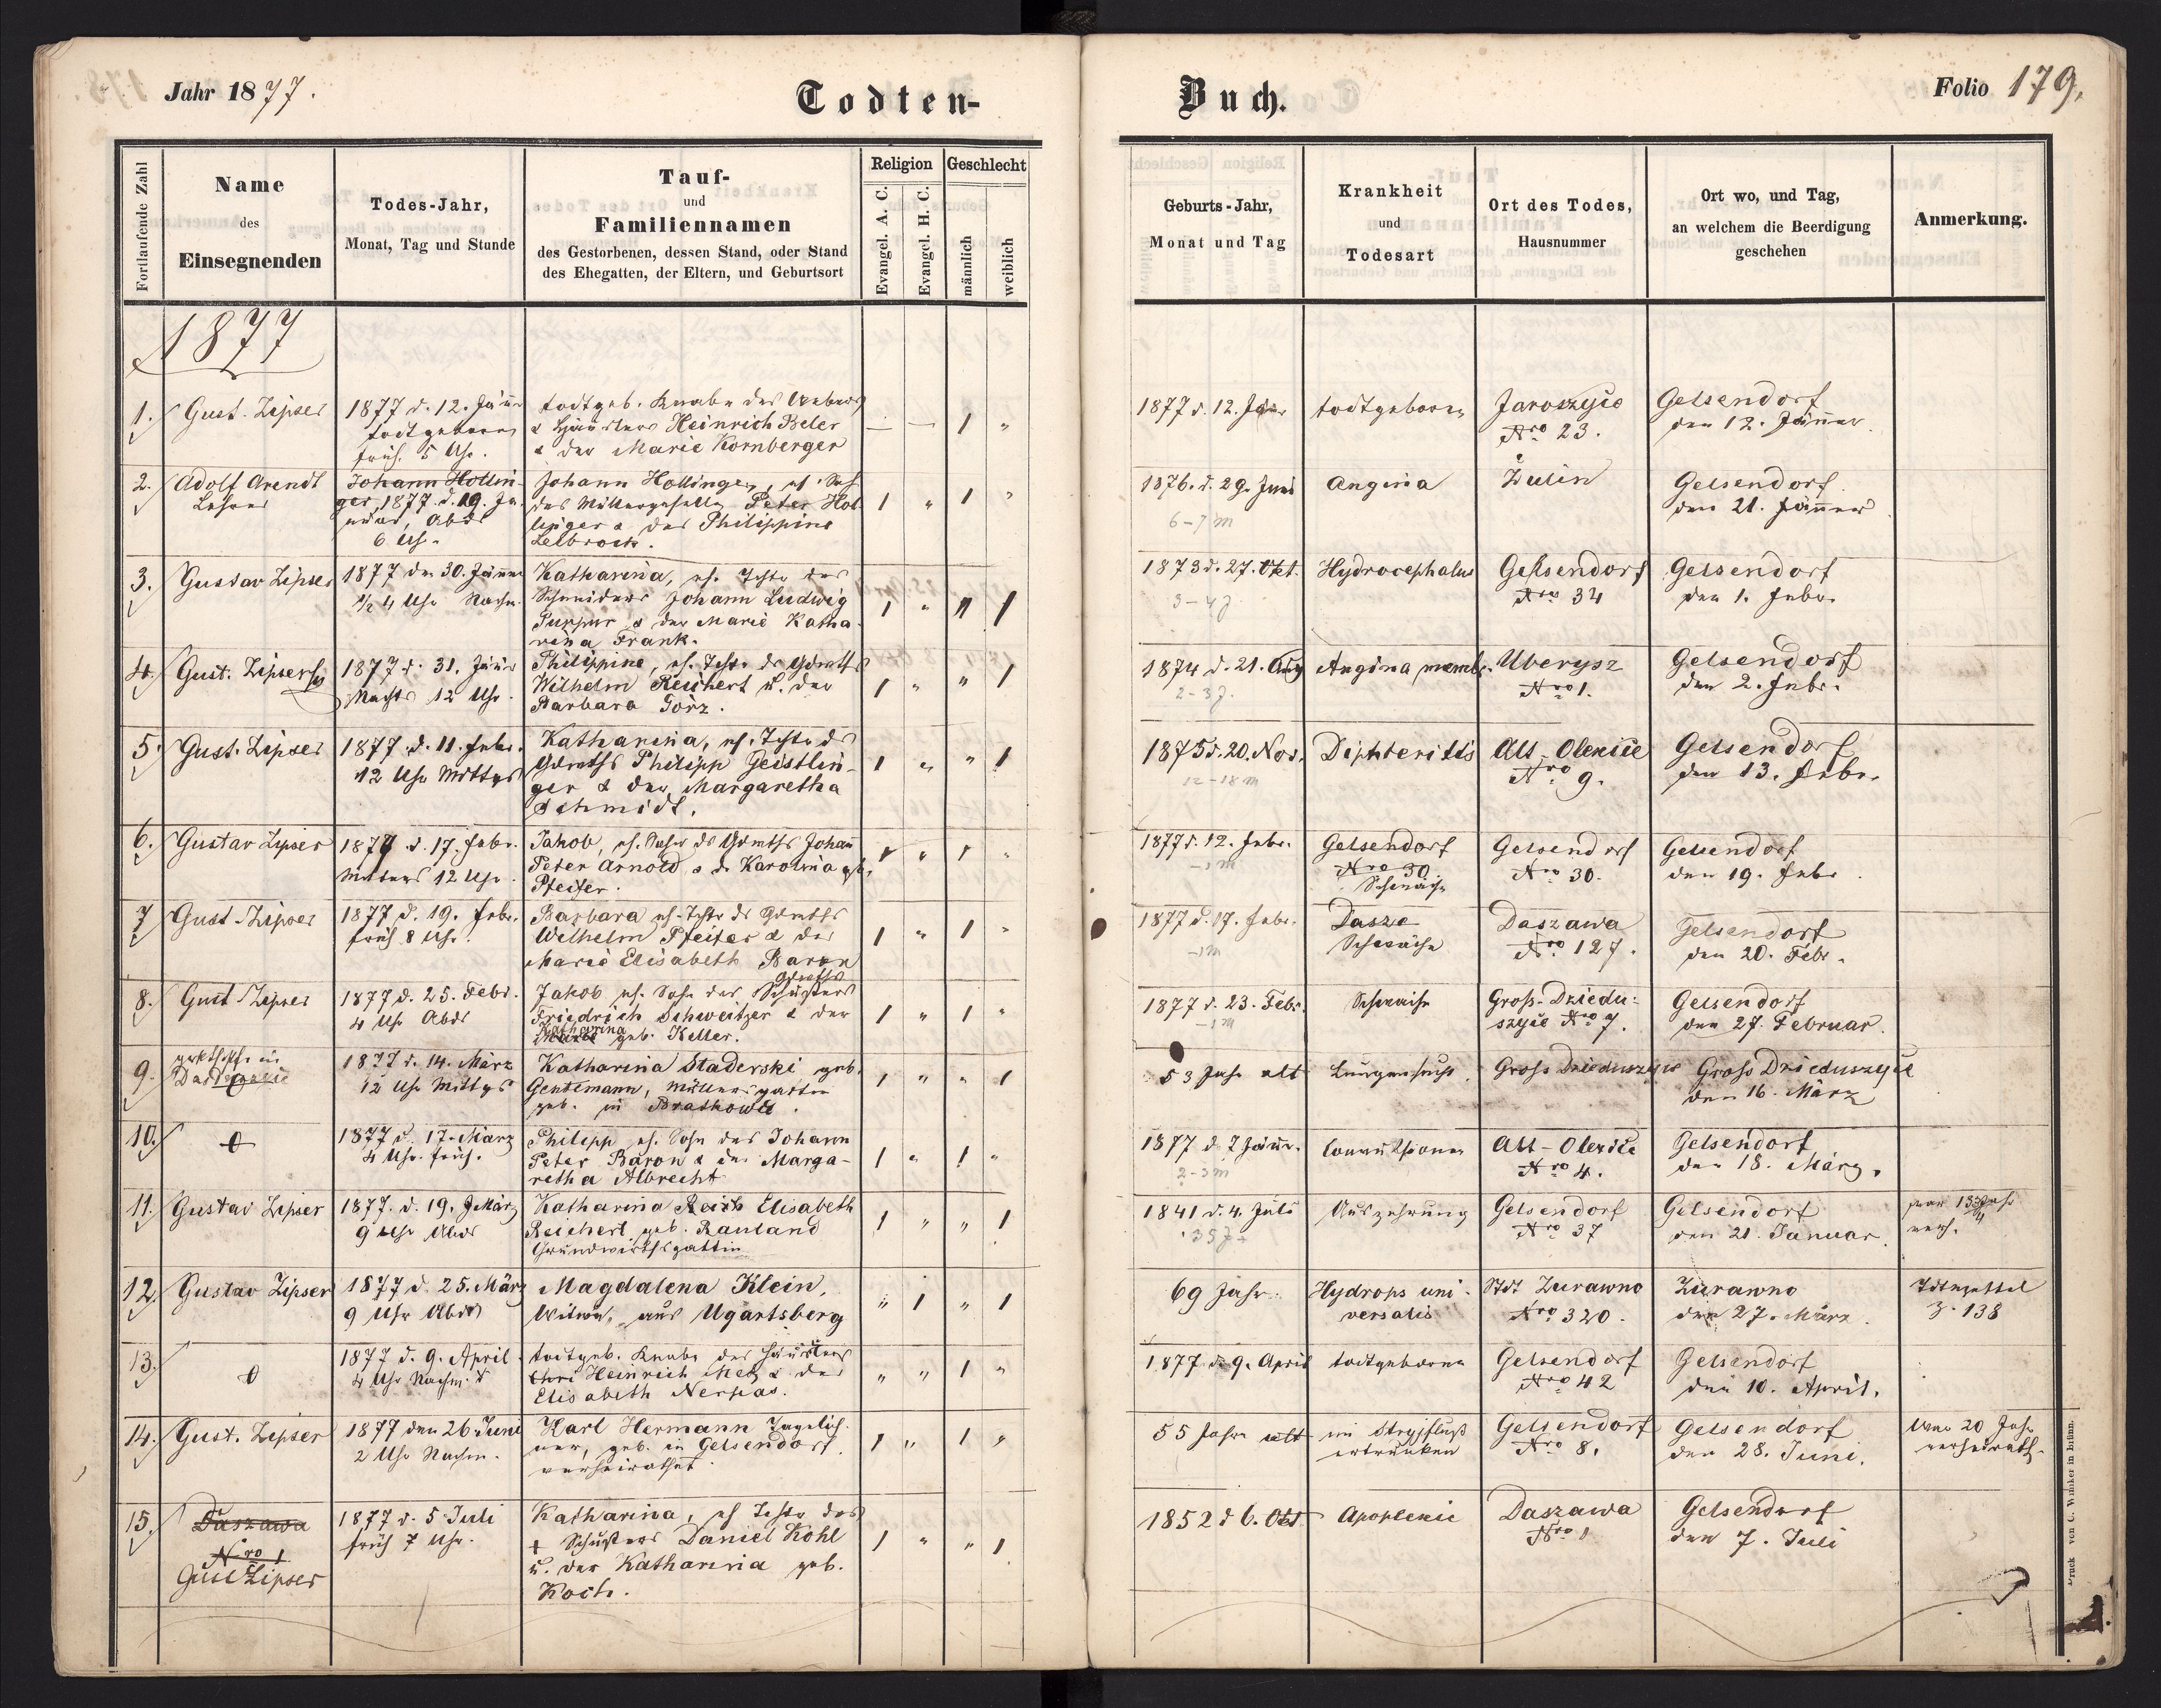 Jahr 1877.
Todten-
Buch.
Folio 179.
Fortlaufende Zahl
Name
des
Einsegnenden
Todes-Jahr,
Monat, Tag und Stunde
Tauf-
und
Familiennamen
des Gestorbenen, dessen Stand, oder Stand
des Ehegatten, der Eltern, und Geburtsort
Religion
Evangel. A. C.
Evangel. H. C.
Geschlecht
männlich
weiblich
Geburts-Jahr,
Monat und Tag
Krankheit
und
Todesart
Ort des Todes,
Hausnummer
Ort wo, und Tag,
an welchem die Beerdigung
geschehen
Anmerkung.
1877
1.
Gust. Zipser
1877 d. 12. Jänner
todtgeboren
früh. 5 Uhr.
todtgeb. Knabe des Webers
& Häuslers Heinrich Beler
& der Marie Kornberger
— — 1 "
1877 d. 12. Jäner
todtgeboren
Jaroszyce
Nro 23.
Gelsendorf
den 12. Jänner.
2.
Adolf Arendt
Lehrer
Johann Hollin-
ger, 1877. d. 19. Jä
nner, Abds
6 Uhr
Johann Hollinger, eh. Sohn
des Müllergesellen Peter Hol
linger & der Philippine
Lelbrock.
1 " 1 "
1876. d. 29. Juni
6-7 m
Angina
Zulin
Gelsendorf
den 21. Jänner
3.
Gustav Zipser
1877 den 30. Jänner
1/2 4 Uhr Nachm.
Katharina, eh. Tochter des
Schneiders Johann Ludwig
Purpur & der Marie Katha
rina Frank.
1 " " 1
1873 d. 27. Okt.
3-4 J
Hydrocephalus
Gelsendorf
Nro 34
Gelsendorf
den 1. Febr.
4.
Gust. Zipser
1877 d. 31. Jänner
Nachts 12 Uhr.
Philippine, eh. Tochter des Gdwths
Wilhelm Reichert u. der
Barbara Görz.
1 " " 1
1874 d. 21. Aug
2-3 J.
Angina membr.
Uherysz
Nro 1.
Gelsendorf
den 2. Febr.
5.
Gust. Zipser
1877 d. 11. Febr.
12 Uhr Mittgs
Katharina, eh. Tochter des
Gdwths Philipp Geistlin-
ger & der Margaretha
Schmidt.
1 " " 1
1875 d. 20. Nov.
12-18 m
Diphteritis
Alt-Oleksice
Nro 9.
Gelsendorf
den 13. Febr.
6.
Gustav Zipser
1877 d. 17. Febr.
Mittags 12 Uhr.
Jakob, eh. Sohn des Gdwths Johann
Peter Arnold & der Karolina geb.
Pfeifer.
1 " 1 "
1877 d. 12. Febr.
-1m
Gelsendorf
Nro 30
Schwäche
Gelsendorf
Nro 30.
Gelsendorf
den 19. Febr.
7
Gust. Zipser
1877 d. 19. Febr.
früh 8 Uhr.
Barbara eh. Tochter des Gdwths
Wilhelm Pfeifer & der
Marie Elisabeth Baron
1 " 1 "
1877 d. 17. Febr.
-1m
Dasza
Schwäche
Daszawa
Nro 127.
Gelsendorf
den 20. Febr.
8.
Gust. Zipser
1877 d. 25. Febr.
4 Uhr Abds
Gdwths
Jakob eh. Sohn des Schusters
Friedrich Schweitzer & der
Katharina
Marie geb. Keller.
1 " 1 "
1877 d. 23. Febr.
-1m
Schwäche
Gross-Dziedu-
szyce Nro 7.
Gelsendorf
den 27. Februar.
9.
1877 d. 14. März
12 Uhr Mittgs
Katharina Staderski geb.
Gentemann, Müllersgattin
geb. in Brathowce.
1 " " 1
53 Jahr alt
Lungensucht.
Gross Dzieduszyce
Gross Dzieduszyce
den 16. März
10.
1877 d. 17. März
4 Uhr. früh.
Philipp eh. Sohn des Johann
Peter Baron & der Marga-
retha Albrecht
1 " 1 "
1877 d. 7 Jänr.
2-3m
Convulsionen
Alt-Olexice
Nro 4.
Gelsendorf
den 18. März.
11.
Gustav Zipser
1877. d. 19. März
9 Uhr Abds
Katharina Elisabeth
Reichert, geb. Rauland
Grundwirthsgattin
1 " " 1
1841 d. 4. Juli
35 J +
Auszehrung
Gelsendorf
Nro 37
Gelsendorf
den 21. Januar.
war 13 3/4 Jahr
verh.
12.
Gustav Zipser
1877 d. 25. März
9 Uhr Abds
Magdalena Klein,
Witwe, aus Ugartsberg
" 1 " 1
69 Jahr.
Hydrops uni-
versalis
Stdt Zurawno
Nro 320.
Zurawno
den 27. März.
Todtenzettel
Z. 138
13.
1877 d. 9. April
4 Uhr Nachm.
todtgeb. Knabe des Häuslers
Heinrich Metz & der
Elisabeth Nerpas.
" " 1 "
1877 d. 9. April
todtgeboren
Gelsendorf
Nro 42
Gelsendorf
den 10. April.
14.
Gust. Zipser
1877 den 26. Juni
2 Uhr Nachm.
Karl Hermann Tagelöh-
ner, geb. in Gelsendorf.
verheirathet
1 " 1 "
55 Jahre alt
im Stryjfluß
ertrunken
Gelsendorf
Nro 8.
Gelsendorf
den 28. Juni.
War 20 Jahr
verheirath.
15.
Daszawa
Nro 1
Gust Zipser
1877 d. 5 Juli
früh 7 Uhr.
Katharina, eh Tochter des
+ Schusters Daniel Kohl
u. der Katharina geb.
Koch.
1 " " 1
1852 d 6. Okt
Apoplexie
Daszawa
Nro 1
Gelsendorf
den 7. Juli
Druck von C. Winiker in Brünn.